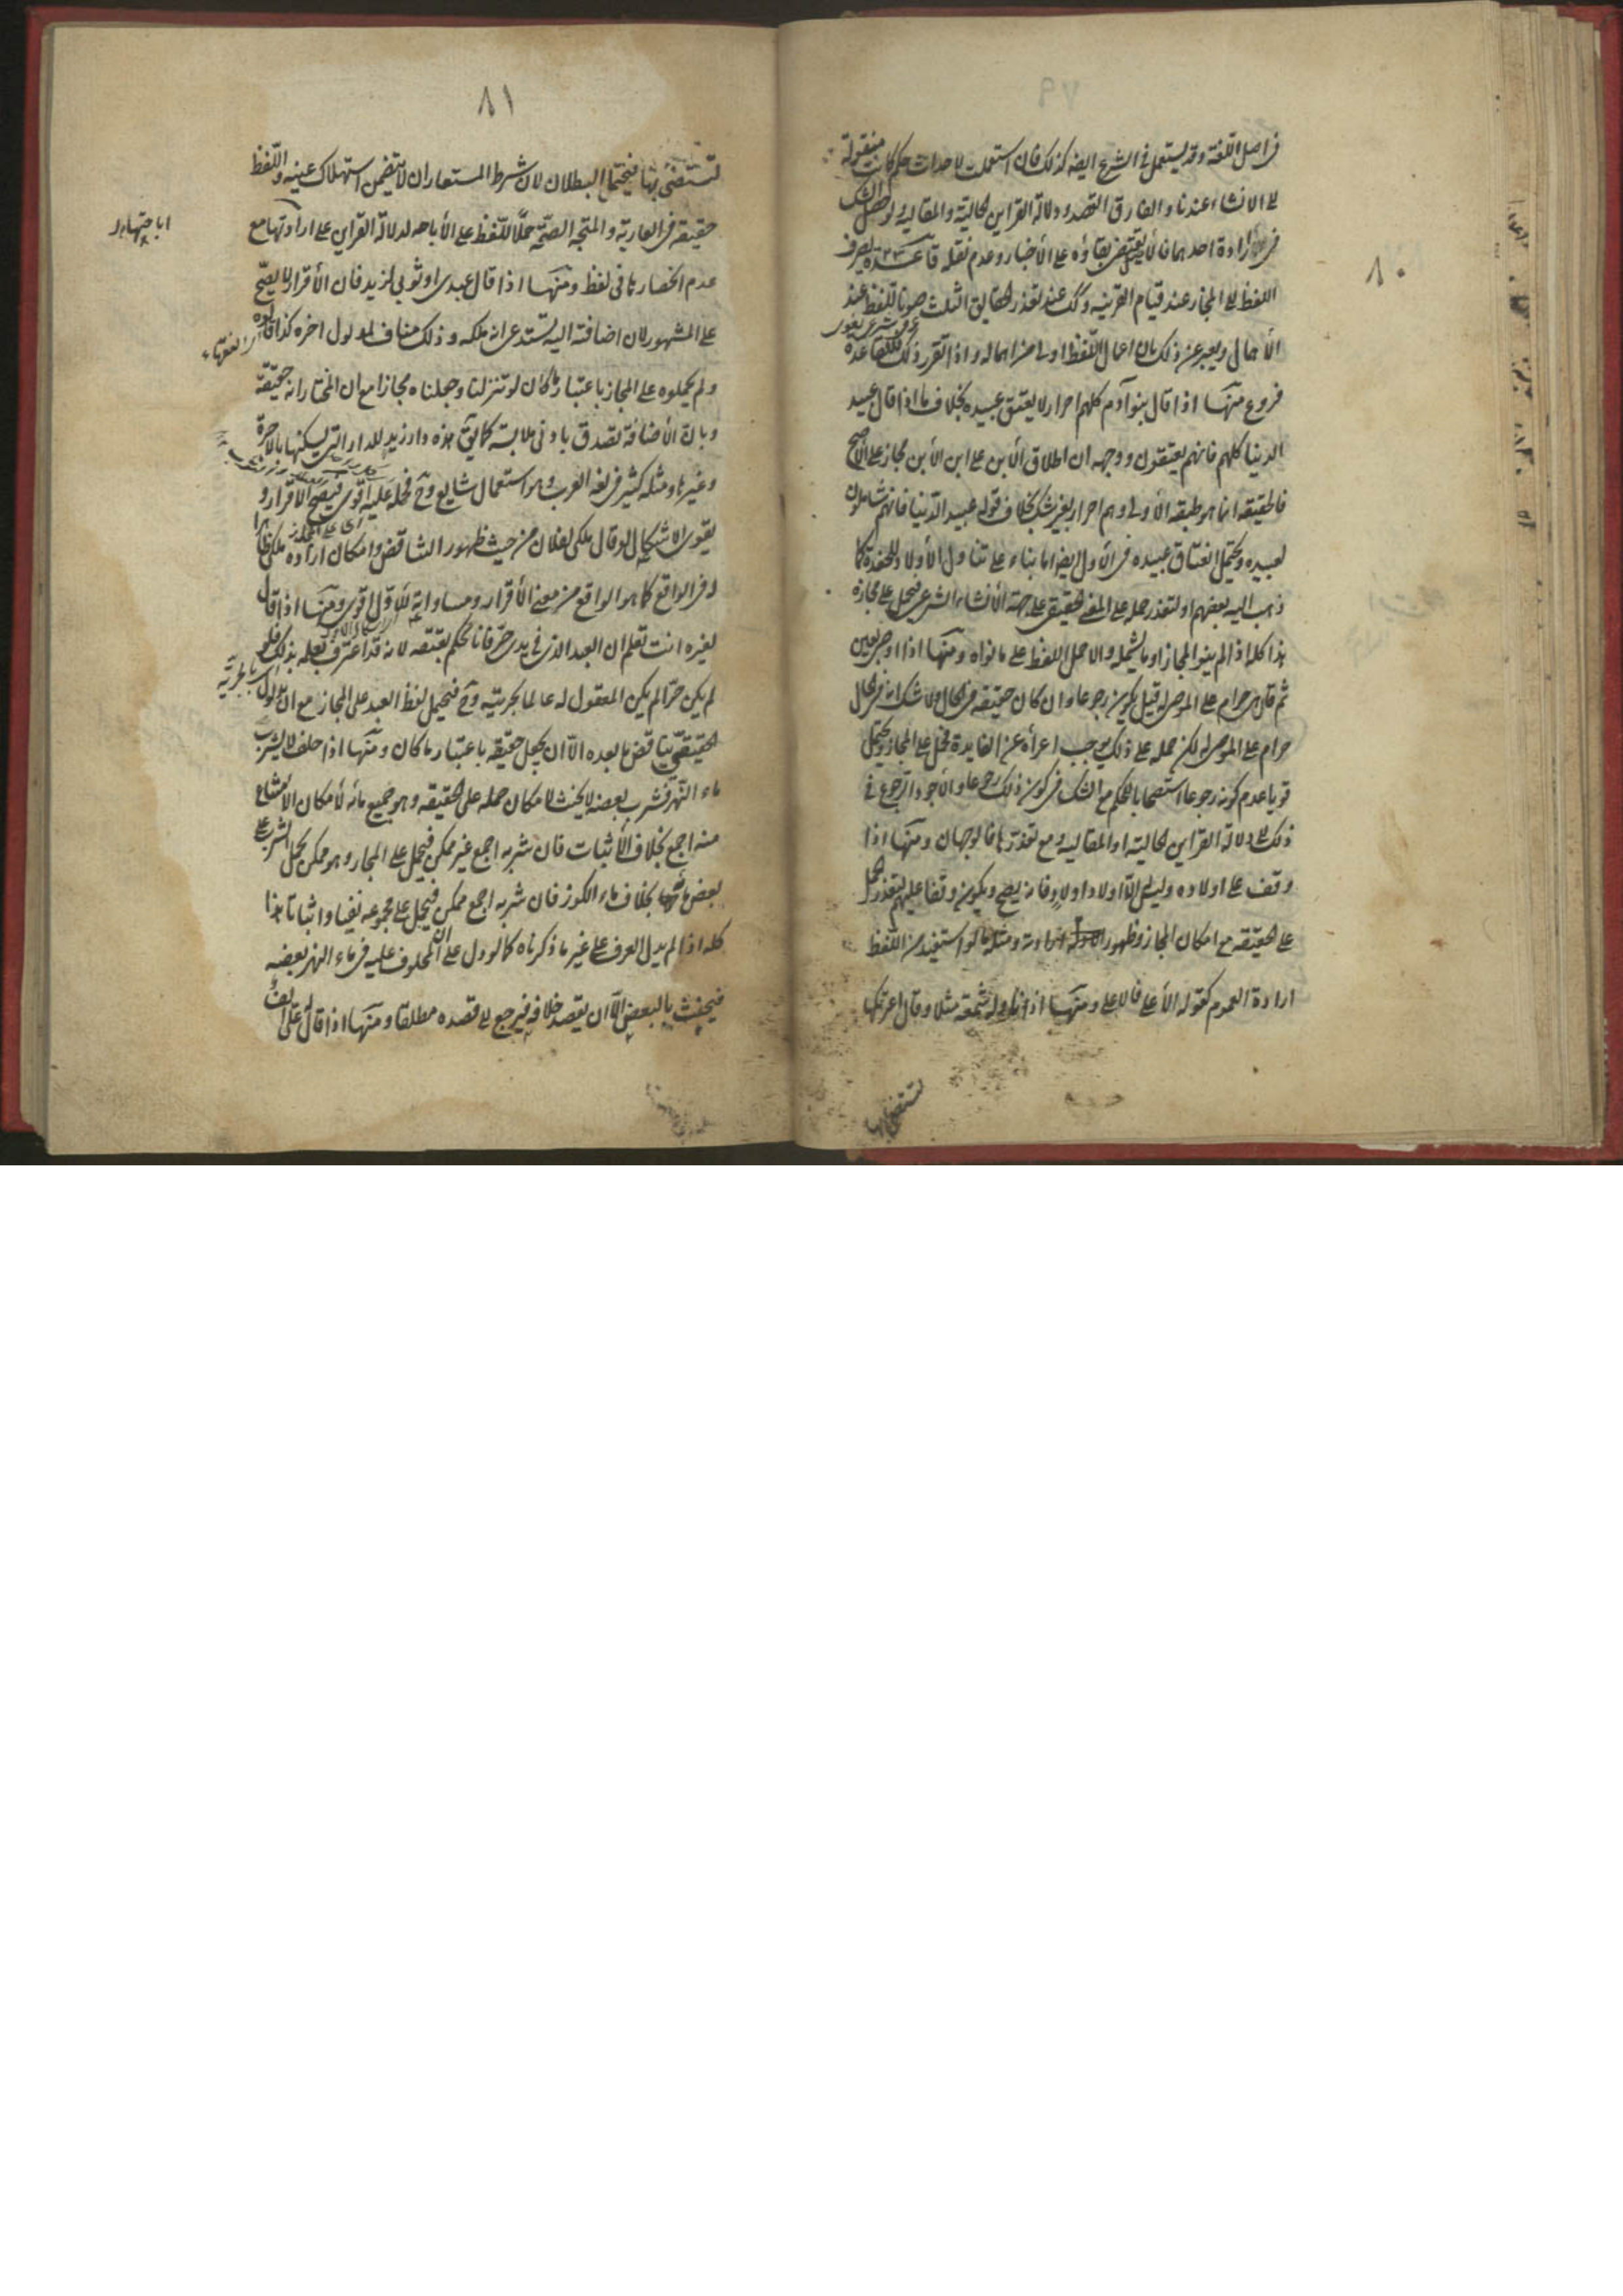 ٨٠
في اصل اللغة وقد يستعمل في الشرع ايضا كذلك فان استعملت لاحداث حكم كانت منقولة
الى الانشاء عندنا والفارق القصد ودلالة القراين الحالية والمقالية ولو حصل الشك
في ارادة احدهما فالاصل يقتضى بقاؤه على الاخبار وعدم نقله قاعدة يصرف
اللفظ الى المجاز عند قيام القرينه وكك عند تعذر الحقايق الثلث صونا للفظ عند
الاهمال ويعبر عن ذلك بان اعمال اللفظ اولى من اهماله واذا تقرر ذلك فللقاعدة
فروع منها اذا قال بنو آدم كلهم احرار لا يعتق عبيده بخلاف ما اذا قال عبيد
الدنيا كلهم فانهم يعتقون ووجهه ان اطلاق الابن على ابن الابن مجاز على الاصح
فالحقيقه انما هو طبقه الاولى وهم احرار بغير شك بخلاف قوله عبيد الدنيا فانهم شاملون
لعبيده ويحتمل انعتاق عبيده في الاول ايضا اما بناء على تناول الاولاد للحفدة كما
ذهب اليه بعضهم او لتعذر حمله على المعنى الحقيقي على جهة الانشاء الشرعي فيحمل على مجازه
هذا كله اذا لم ينو المجاز او ما يشمله والا حمل اللفظ على ما نواه ومنها اذا اوصى بعين
ثم قال هى حرام على الموصى له قيل يكون رجوعا وان كان حقيقه في الحال ولا شك انه في الحال
حرام على الموصى له لكن حمله على ذلك يوجب اعرأه عن الفايدة فحمل على المجاز ويحتمل
قويا عدم كونه رجوعا استصحابا للحكم مع الشك في كون ذلك رجوعا والاجود الرجوع في
ذلك الى دلالة القراين الحالية او المقاليه ومع تعذرها فالوجهان ومنها اذا
وقف على اولاده وليس له الا اولاد اولاد فانه يصح ويكون وقفا عليهم لتعذر الحمل
على الحقيقه مع امكان المجاز وظهور ارادته ومثله ما لو استفيد من اللفظ
ارادة العموم كقوله الاعلى فالاعلى ومنها اذا ناوله شمعة مثلا وقال اعرتكها
لتستضئ بها
٨١
لتستضئ بها فيحتمل البطلان لان شرط المستعار ان لا يتضمن استهلاك عينه واللفظ
حقيقه في العارية والمتجه الصحة حملا للفظ على الاباحه لدلالة القراين على ارادتها مع
عدم انحصارها في لفظ ومنها اذا قال عبدى او ثوبى لزيد فان الاقرار لا يصح
على المشهور لان اضافته اليه تستدعى انه ملكه وذلك مناف لمدلول اخره كذا قالوه
ولم يحملوه على المجاز باعتبار ما كان لو تنزلنا وجعلناه مجازا مع ان المختار انه حقيقة
وبان الاضافة تصدق بادنى ملابسة كما يق هذه دار زيد للدار التي يسكنها بالاجرة
وغيرها ومثله كثير في لغة العرب وهو استعمال شايع وح فحمله عليه اقوى فيصح الاقرار و
يقوى الاشكال لو قال ملكى لفلان من حيث ظهور التناقض وامكان ارادة ملكى ظاهرا
او في الواقع كما هو الواقع من معنى الاقرار ومساواته للاول اقوى ومنها اذا قال
لغيره انت تعلم ان العبد الذى في يدى حر فانا نحكم بعتقه لانه قد اعترف بعلمه بذلك ولو
لم يكن حرا لم يكن المقول له عالما بحريته وح فيحمل لفظ العبد على المجاز مع ان مدلول
الحقيقى يناقض ما بعده الا ان يجعل حقيقة باعتبار ما كان ومنها اذا حلف لا يشرب
ماء النهر فشرب بعضه لا يحنث لامكان حمله على الحقيقه وهو جميع مائه لامكان الامتناع
منه اجمع بخلاف الاثبات فان شربه اجمع غير ممكن فيحمل على المجاز وهو ممكن بحمل الشرب على
بعض مائها بخلاف ماء الكوز فان شربه اجمع ممكن فيحمل على مجموعه نفيا واثباتا هذا
كله اذا لم يدل العرف على غير ما ذكرناه كما لو دل على ان المحلوف عليه في ماء النهر بعضه
فيحنث بالبعض الا ان يقصد خلافه فيرجع الى قصده مطلقا ومنها اذا قال له على الف